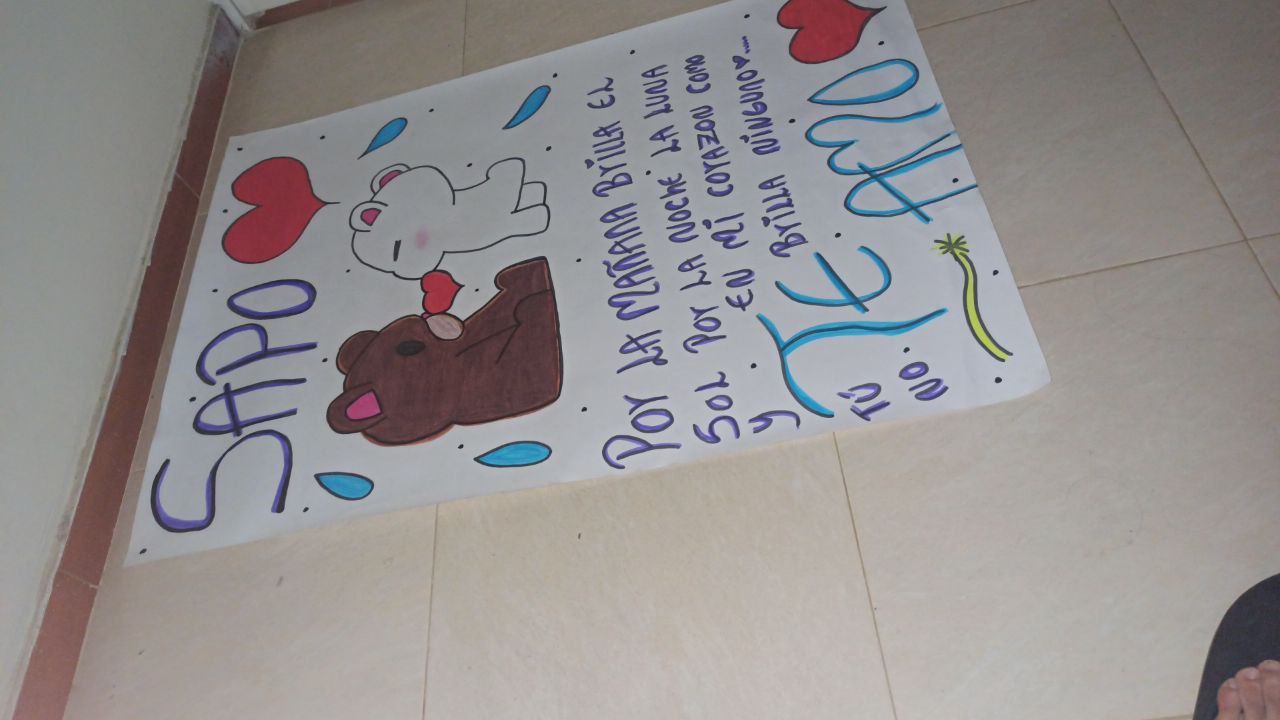 SAPO
POR LA MAÑANA BRILLA EL
SOL POR LA NOCHE LA LUNA
Y EN MI CORAZON COMO
TÚ BRILLA NINGUNO....
NO
TE AMO